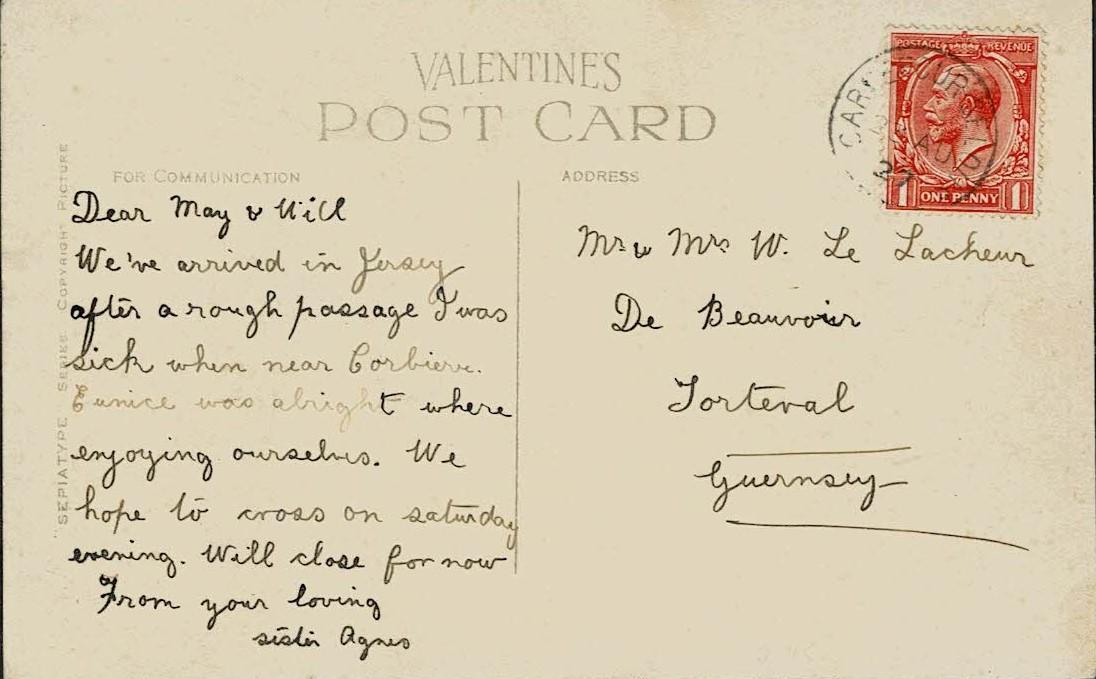 VALENTINE'S
POST CARD
FOR COMMUNICATION
ADDRESS
"SEPIATYPE SERIES COPYRIGHT PICTURE
POSTAGE REVENUE
1 ONE PENNY 1
AU
27
Dear May & Will
We've arrived in Jersey
after a rough passage I was
sick when near Corbiere.
Eunice was alright where
enjoying ourselves. We
hope to cross on saturday
evening. Will close for now
From your loving
sister Agnes
Mr & Mrs W. Le Lacheur
De Beauvoir
Torteval
Guernsey